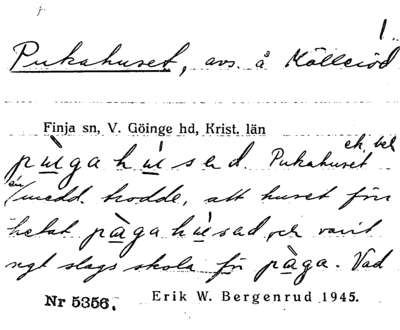 1.
Pukahuset, avs. å Mölleröd
Finja sn, V. Göinge hd, Krist. län
pùgahúsad. Pukahuset ek. bel
en medd. trodde, att huset förr
hetat pàgahúsad och varit
ngt slags skola för pàga. Vad
Nr 5356. Erik W. Bergenrud 1945.